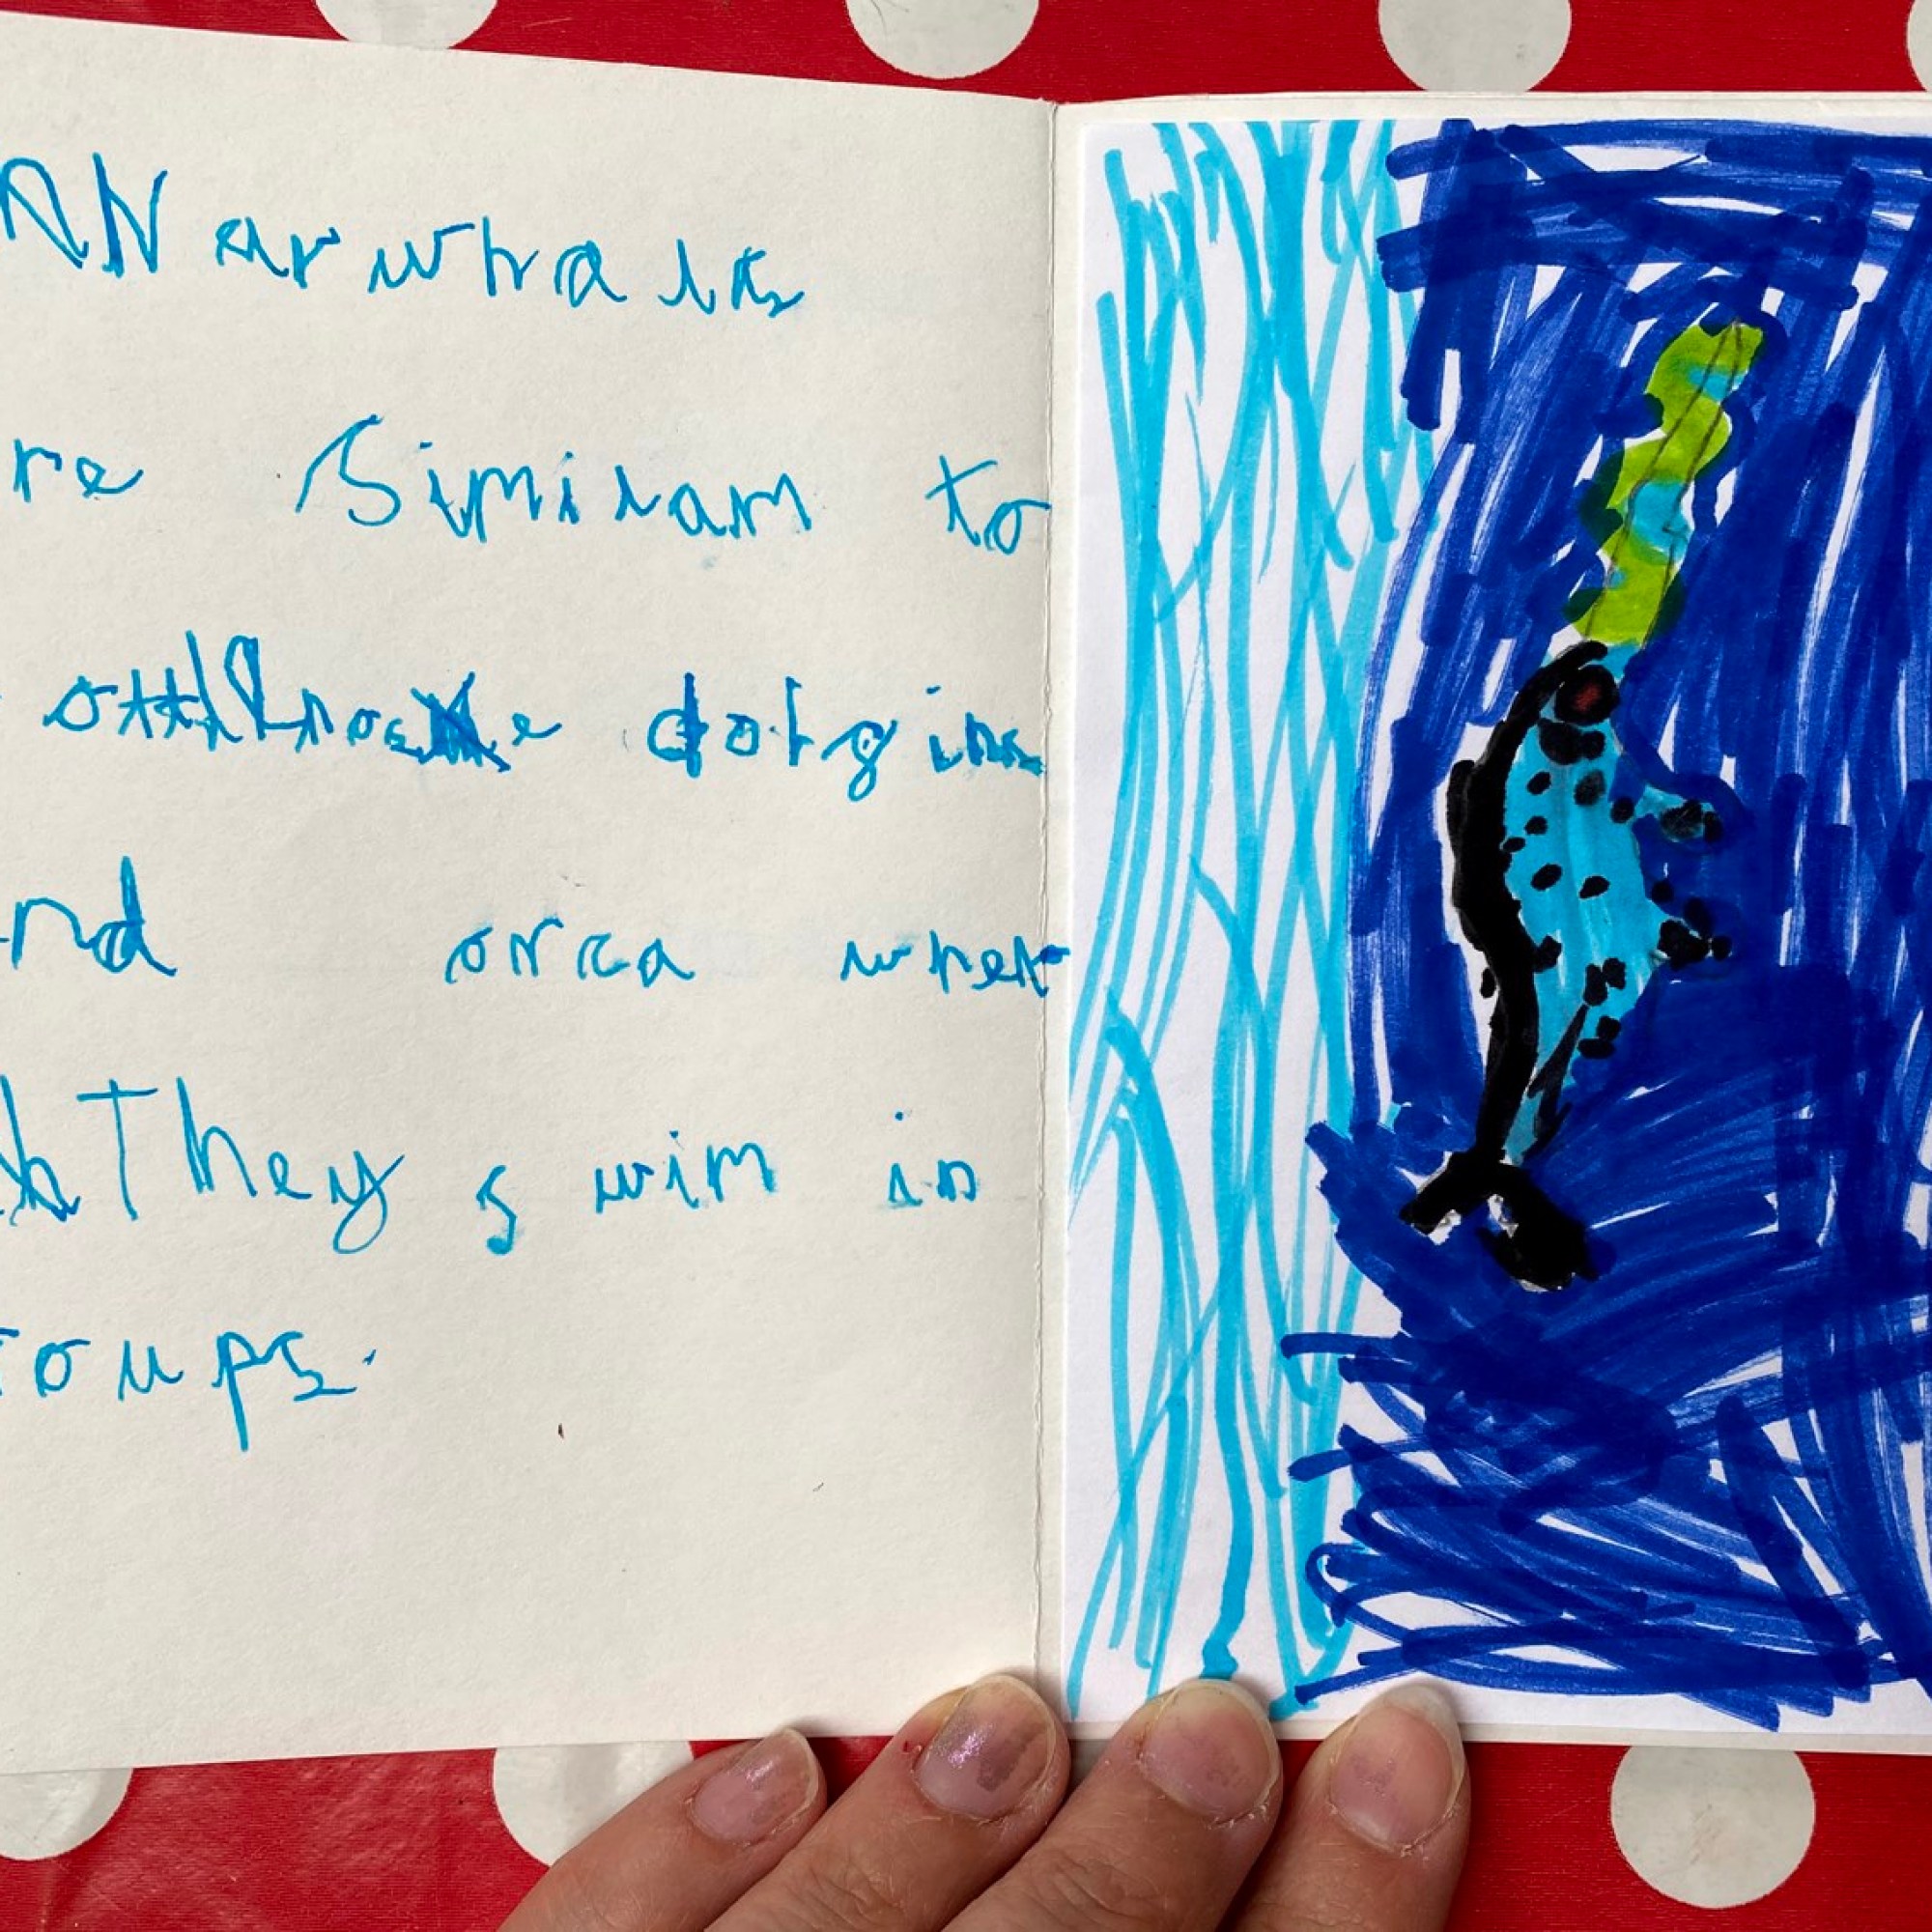 Narwhals
re Similam to
dolgins
nd orca when
They swim in
roups.